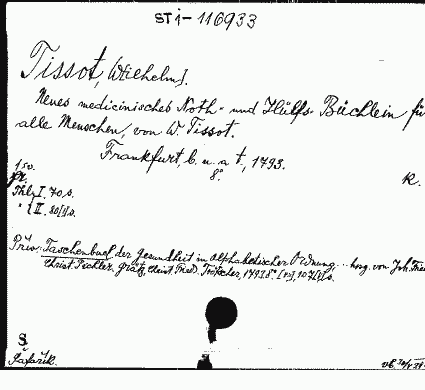 ST i - 116933
Tissot, W[ilhelm].
Neues medicinisches Noth- und Hülfs-Büchlein für
alle Menschen, von W. Tissot.
Frankfurt, b. u. a t., 1793.
8°. K.
150.
Thle I. 70 s.
II. 80[1] s.
Přiv: Taschenbuch der Gesundheit in alphabetischer Ordnung, ... hrsg. von Joh. Frie
Christ. Pichler. Gratz, Christ. Fried. Trötscher, 1793. 8°
Š.
Šafařík.